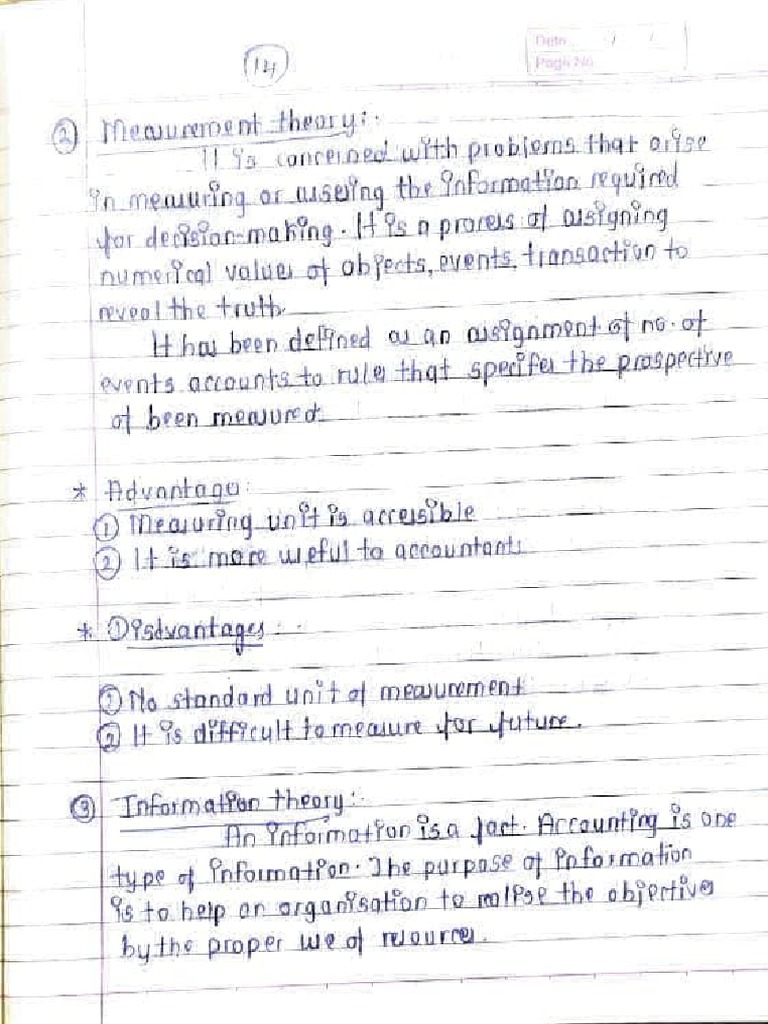 14
Date / /
Page No
② Measurement theory:-
It is concerned with problems that arise
in measuring or assesing the information required
for decision-making. It is a process of assigning
numerical values of objects, events, transaction to
reveal the truth.
It has been defined as an assignment of no. of
events accounts to rules that specifes the prospective
of been measured.
* Advantage:
① Measuring unit is accessible
② It is more useful to accountants
* Disdvantages:-
① No standard unit of measurement
② It is difficult to measure for future.
③ Information theory:-
An information is a fact. Accounting is one
type of information. The purpose of information
is to help an organisation to realise the objective
by the proper use of resources.